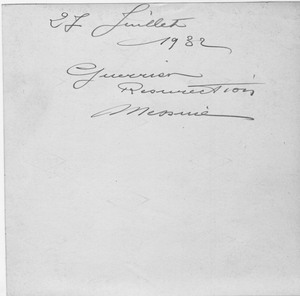 27 Juillet
1932
Guerrison
Resurrection
Messine